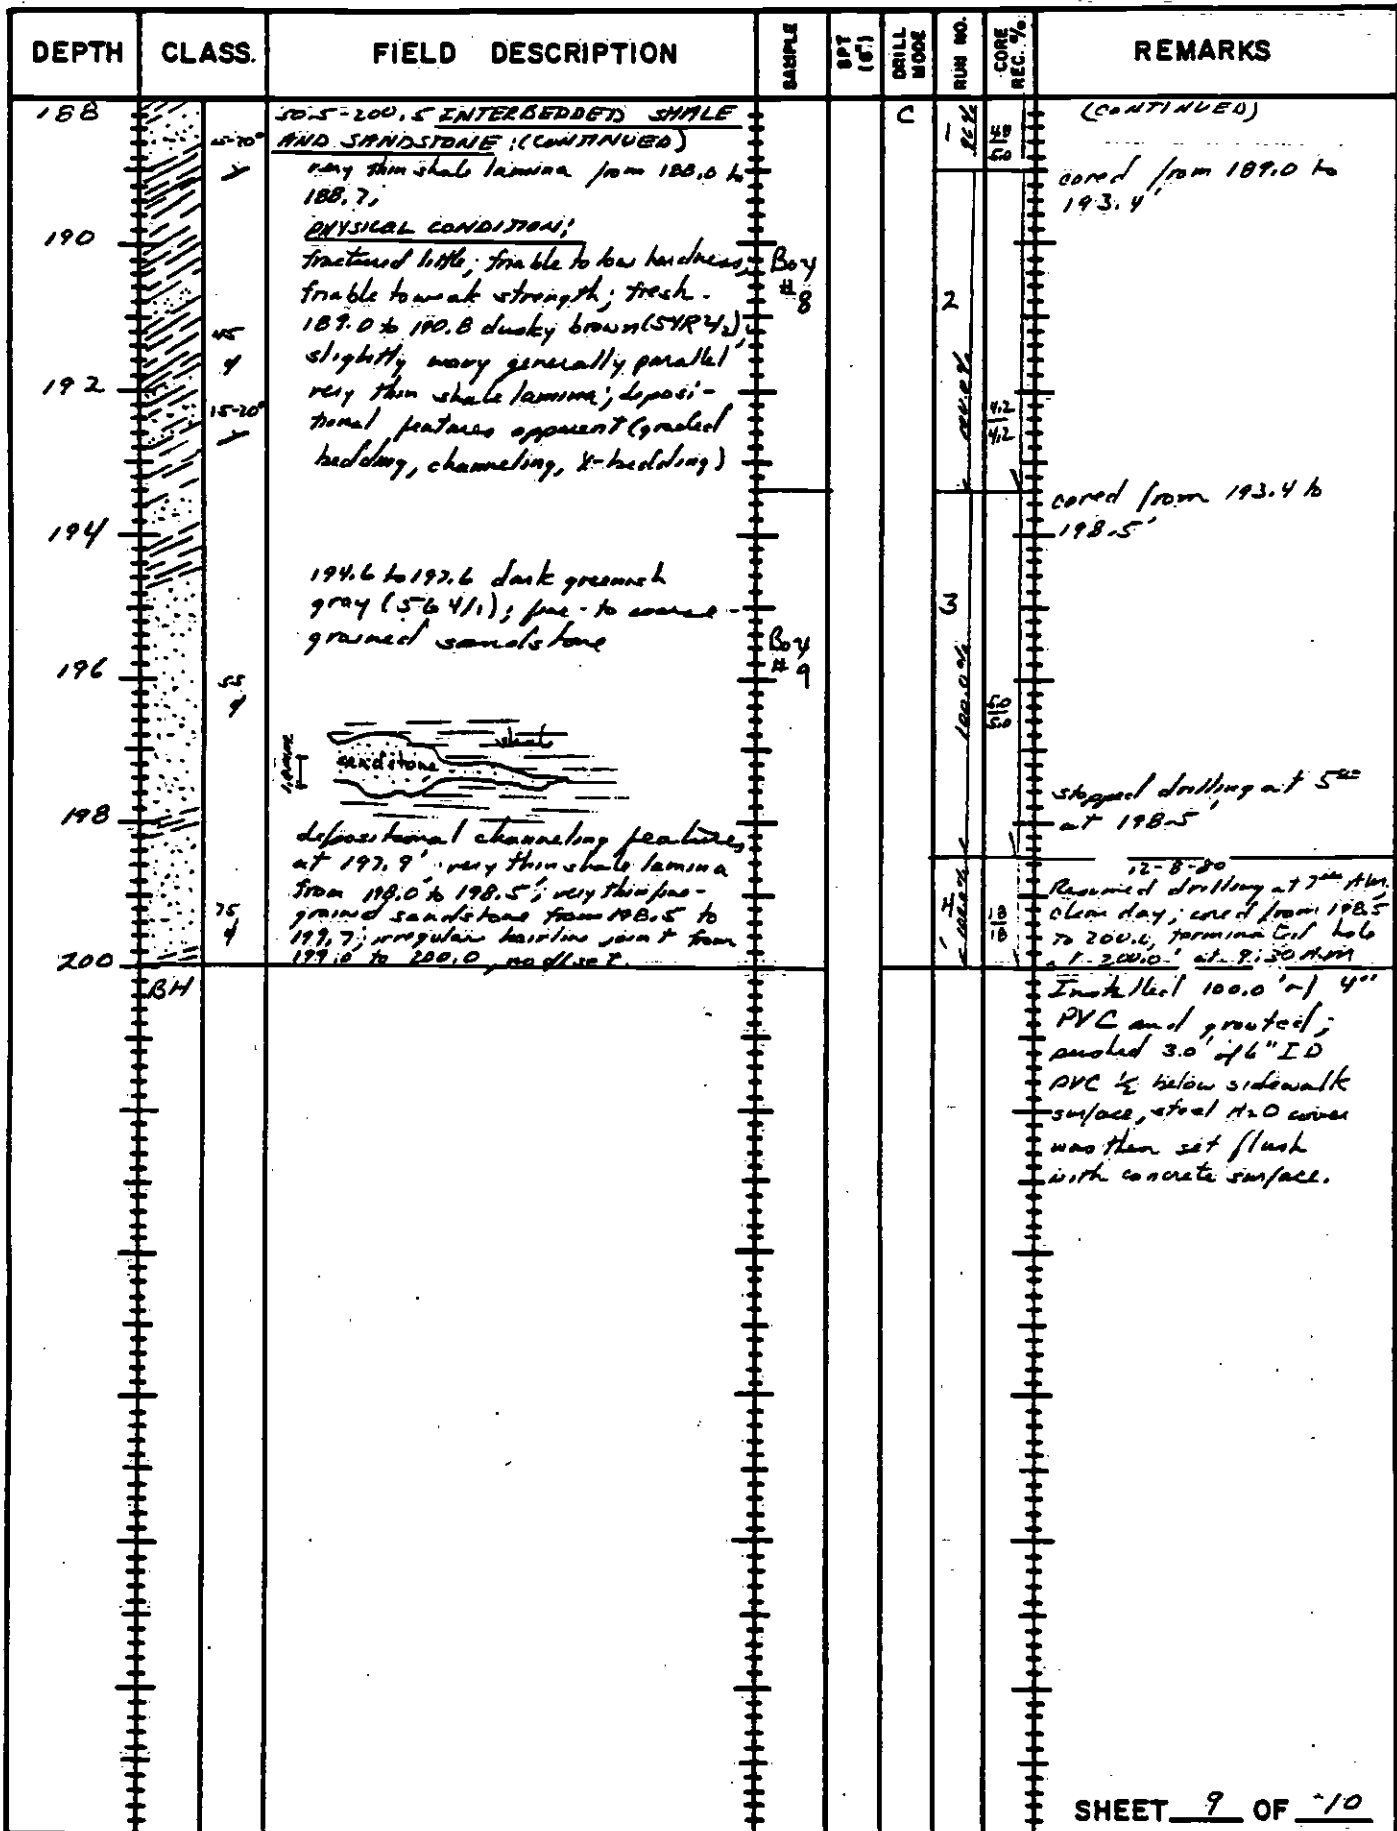 DEPTH CLASS. FIELD DESCRIPTION SAMPLE SPT (6") DRILL MODE RUN NO. CORE REC. % REMARKS
188
190
192
194
196
198
200
BH
15-20°
45
15-20°
55
75
50.5-200.5 INTERBEDDED SHALE
AND SANDSTONE; (CONTINUED)
very thin shale lamina from 188.0 to
188.7;
PHYSICAL CONDITION;
fractured little; friable to low hardness;
friable to weak strength; fresh.
189.0 to 190.8 dusky brown (5YR 2/2);
slightly wavy generally parallel
very thin shale lamina; deposi-
tional features apparent (graded
bedding, channeling, X-bedding)
194.6 to 197.6 dark greenish
gray (5G 4/1); fine- to coarse-
grained sandstone
shale
sandstone
depositional channeling features
at 197.9'; very thin shale lamina
from 198.0 to 198.5'; very thin fine-
grained sandstone from 198.5 to
199.7; irregular hairline joint from
199.0 to 200.0, no offset.
Box
#8
Box
#9
C
1
96%
4.8
5.0
2
100.0%
4.2
4.2
3
100.0%
5.0
5.0
4
100.0%
1.8
1.8
(CONTINUED)
cored from 189.0 to
193.4'
cored from 193.4 to
198.5'
stopped drilling at 5:00
at 198.5'
12-8-80
Resumed drilling at 7:00 AM.
clear day; cored from 198.5
to 200.0, terminated hole
at 200.0' at 9:30 AM
Installed 100.0' of 4"
PVC and grouted;
pushed 3.0' of 6" ID
PVC below sidewalk
surface, steel H2O cover
was then set flush
with concrete surface.
SHEET 9 OF 10